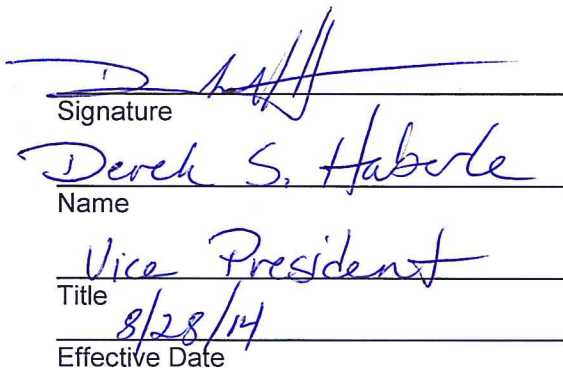 Signature
Derek S. Haberle
Name
Vice President
Title
8/28/14
Effective Date